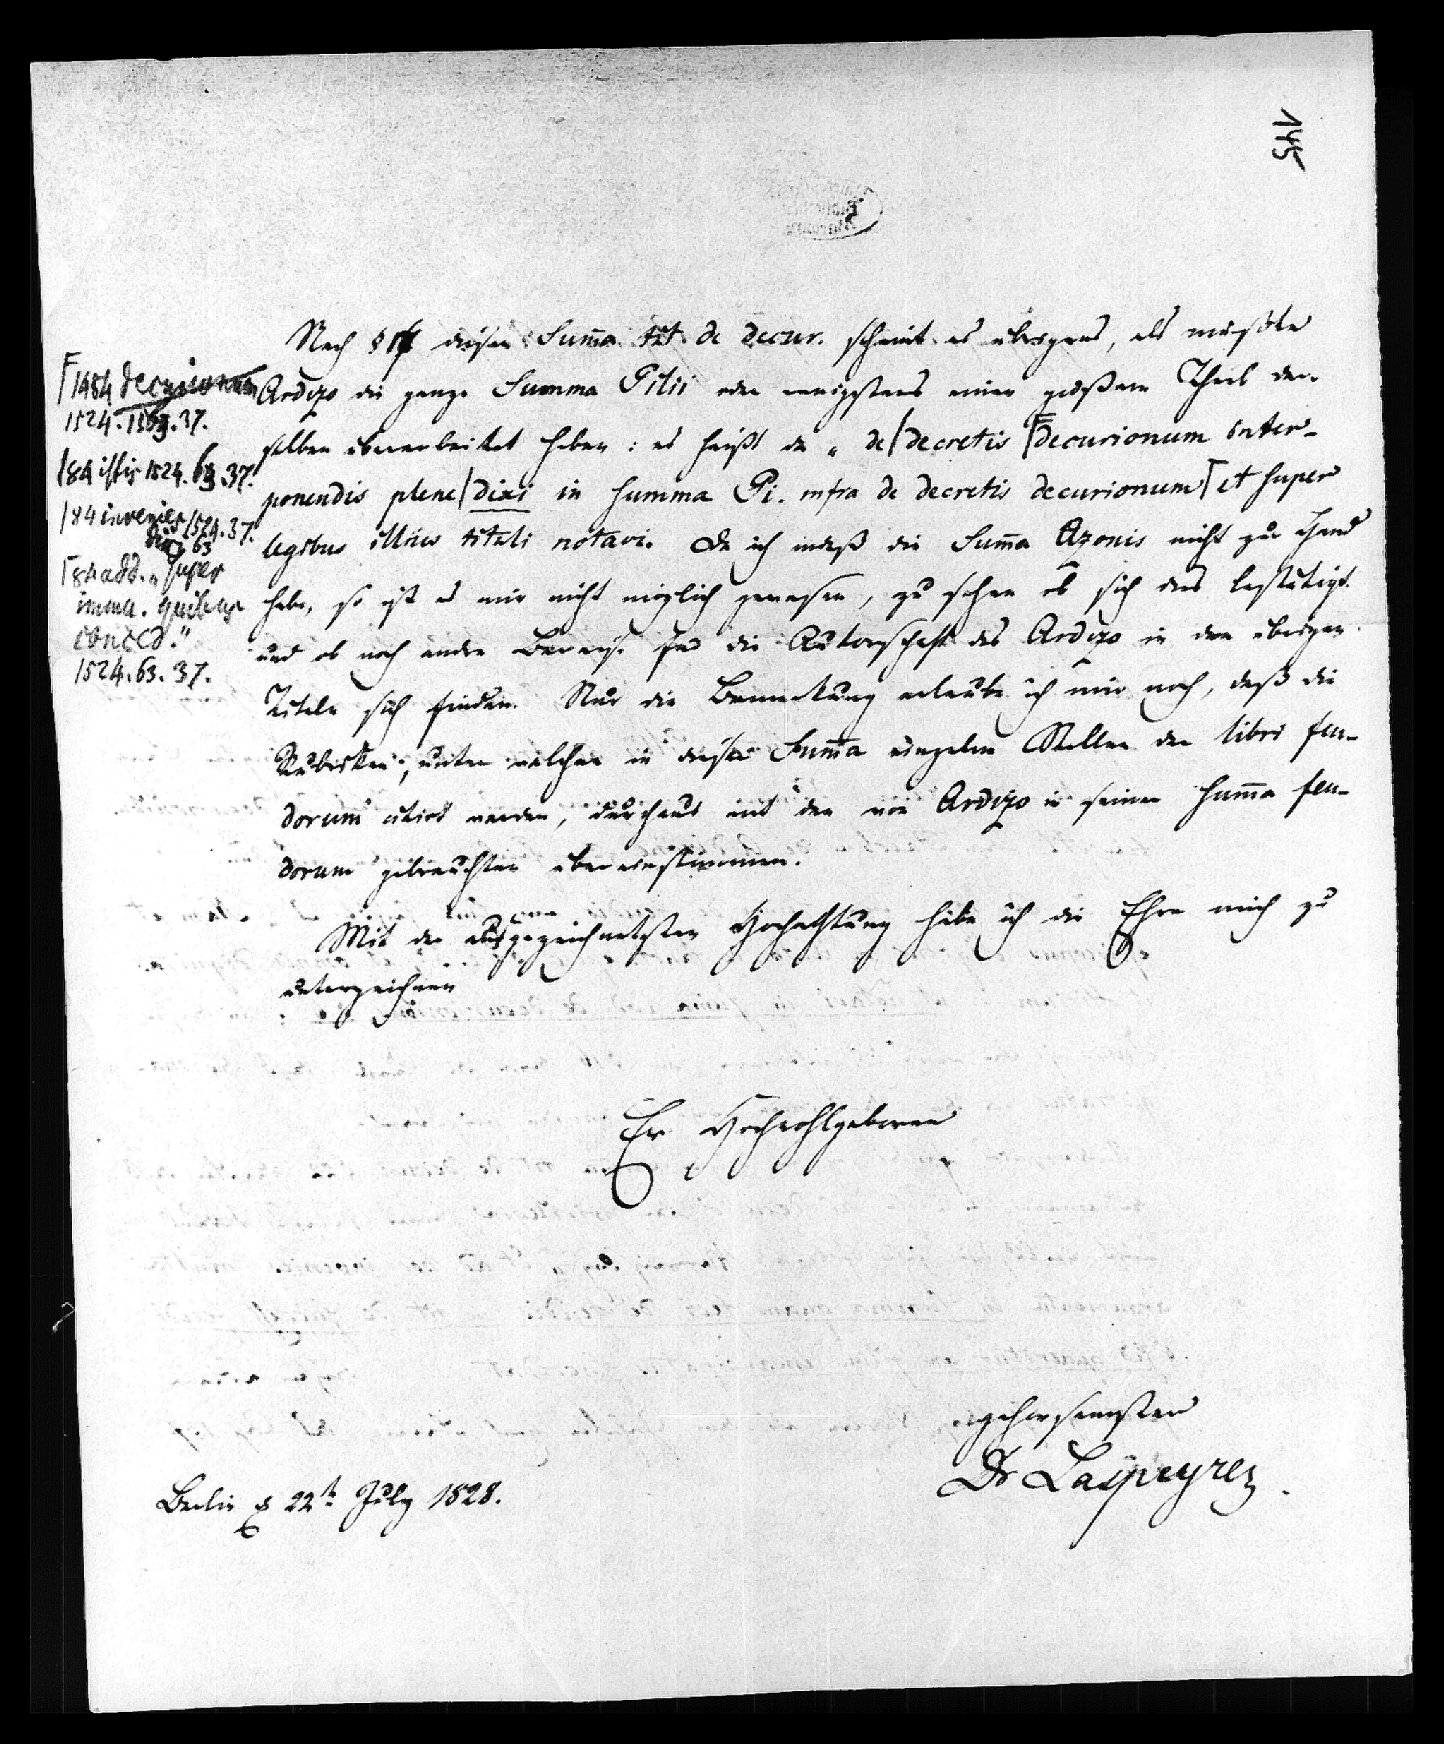 145
Nach § 14 dieser Summa tit de decur. scheint es übrigens, als müßte
Ardizo die ganze Summa Pilii oder wenigstens einen großen Theil der-
selben überarbeitet haben: es heißt da „ de decretis decurionum inter-
ponendis plene dixi in summa Pi. infra de decretis decurionum et super
legibus illius tituli notavi. Da ich indeß die Summa Azonis nicht zur Hand
habe, so ist es mir nicht möglich gewesen, zu sehen ob sich dies bestätigt
und ob noch andre Beweise für die Autorschaft des Ardizo in den übrigen
Titeln sich finden. Nur die Bemerkung erlaube ich mir noch, daß die
Rubriken, unter welchen in dieser Summa einzelne Stellen der libri feu-
dorum citirt werden, durchaus mit den von Ardizo in seiner Summa feu-
dorum gebrauchten übereinstimmen.
Mit der ausgezeichnetsten Hochachtung habe ich die Ehre mich zu
unterzeichnen
Ew Hochwohlgeboren
gehorsamster
Dr Laspeyres.
Berlin d 22t July 1828.
1484 decurionum
1524. 1563. 37.
84 istis 1524. 63. 37.
84 invenies 1524. 37.
dixi 63
84 add. „super
imma. quibus
conced."
1524. 63. 37.